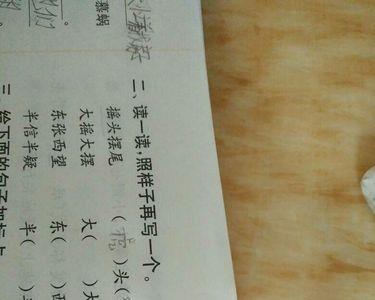 慕蜗
们。
二、读一读,照样子再写一个。
摇头摆尾 ( )头(
大摇大摆 大( )大
东张西望 东( )西
半信半疑 半( )
三 给下面的句子加标点